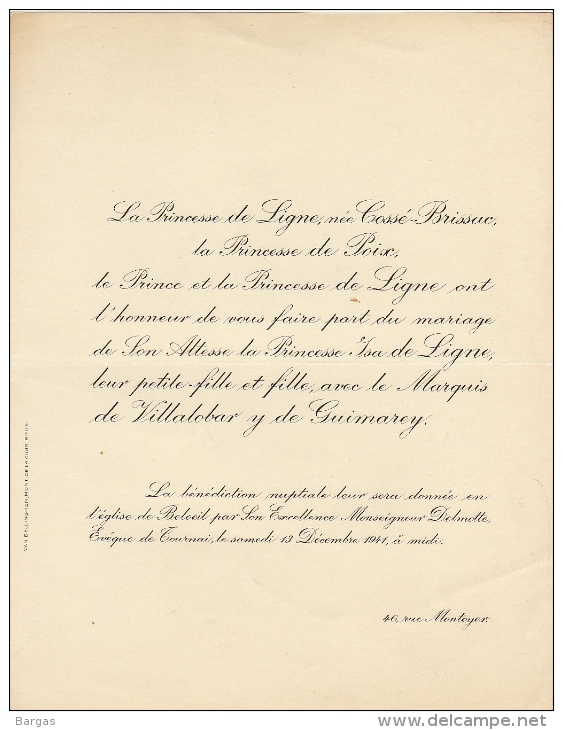 La Princesse de Ligne, née Cossé-Brissac,
la Princesse de Poix,
le Prince et la Princesse de Ligne ont
l'honneur de vous faire part du mariage
de Son Altesse la Princesse Isa de Ligne,
leur petite-fille et fille, avec le Marquis
de Villalobar y de Guimarey.
La bénédiction nuptiale leur sera donnée en
l'église de Beloeil par Son Excellence Monseigneur Delmotte,
Evêque de Tournai, le samedi 13 Décembre 1941, à midi.
40, rue Montoyer.
Bargas
delcampe.net